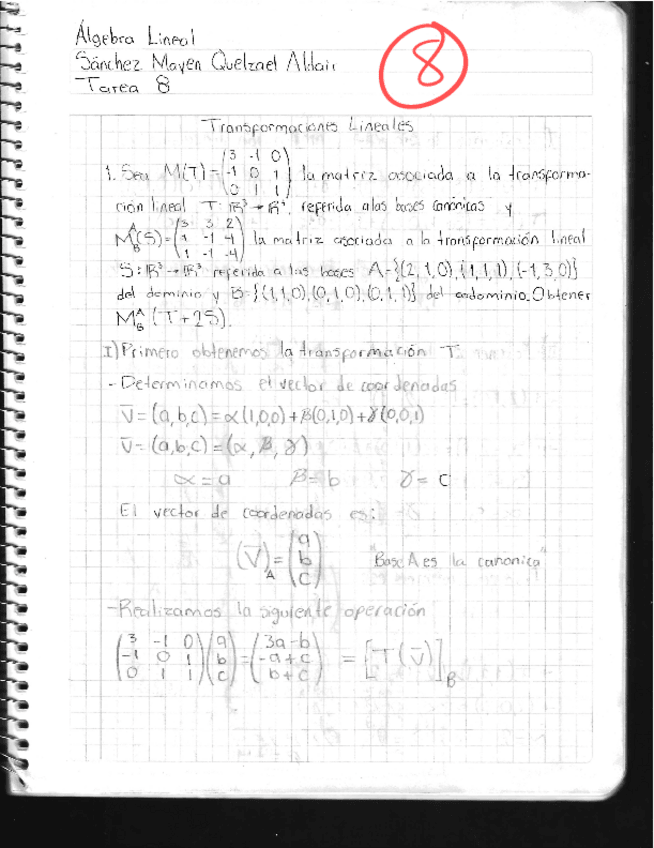 Álgebra Lineal
Sánchez Mayen Quelzael Aldair
Tarea 8
8
Transformaciones Lineales
1. Sea M(T)=(3 -1 0; -1 0 1; 0 1 1) la matriz asociada a la transforma-
ción lineal T: ℝ³→ℝ³, referida a las bases canónicas y
M^A_B(S)=(3 3 2; 1 -1 -4; 1 -1 -4) la matriz asociada a la transformación lineal
S: ℝ³→ℝ³ referida a las bases A={(2,1,0),(1,1,1),(-1,3,0)}
del dominio y B={(1,1,0),(0,1,0),(0,1,1)} del codominio. Obtener
M^A_B (T+2S).
I) Primero obtenemos la transformación T
- Determinamos el vector de coordenadas
v̄=(a,b,c)=α(1,0,0)+β(0,1,0)+γ(0,0,1)
v̄=(a,b,c)=(α,β,γ)
α=a β=b γ=c
El vector de coordenadas es:
(v̄)_A=(a; b; c) "Base A es la canonica"
-Realizamos la siguiente operación
(3 -1 0; -1 0 1; 0 1 1)(a; b; c)=(3a-b; -a+c; b+c) = [T(v̄)]_B